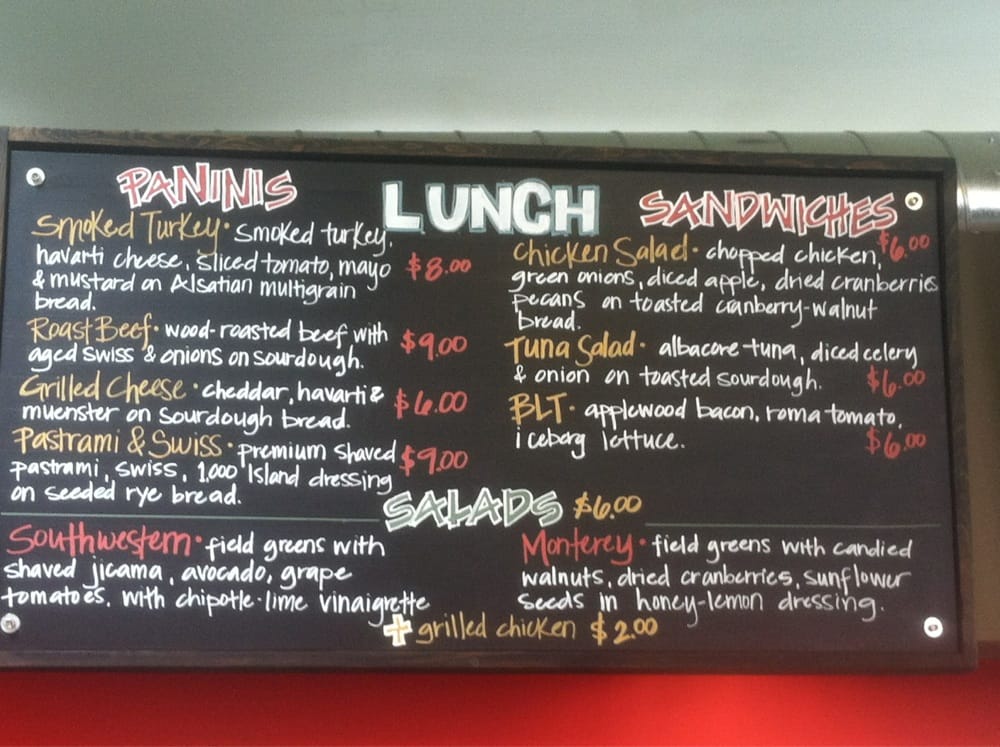 LUNCH
PANINIS
Smoked Turkey · smoked turkey,
havarti cheese, sliced tomato, mayo $8.00
& mustard on Alsatian multigrain
bread.
Roast Beef · wood-roasted beef with
aged swiss & onions on sourdough. $9.00
Grilled Cheese · cheddar, havarti &
muenster on sourdough bread. $6.00
Pastrami & Swiss · premium shaved
pastrami, swiss, 1,000 Island dressing $9.00
on seeded rye bread.
SANDWICHES
Chicken Salad · chopped chicken, $6.00
green onions, diced apple, dried cranberries
pecans on toasted cranberry-walnut
bread.
Tuna Salad · albacore tuna, diced celery
& onion on toasted sourdough. $6.00
BLT · applewood bacon, roma tomato,
iceberg lettuce. $6.00
SALADS $6.00
Southwestern · field greens with
shaved jicama, avocado, grape
tomatoes, with chipotle-lime vinaigrette
Monterey · field greens with candied
walnuts, dried cranberries, sunflower
seeds in honey-lemon dressing.
+ grilled chicken $2.00